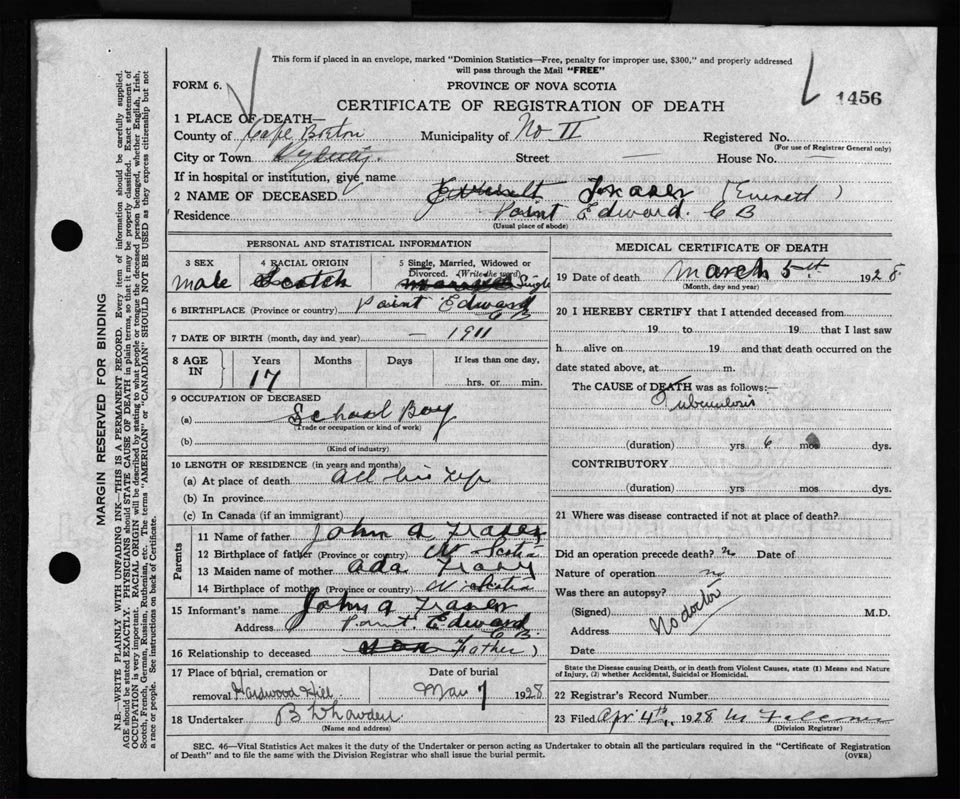 This form if placed in an envelope, marked "Dominion Statistics—Free, penalty for improper use, $300," and properly addressed
will pass through the Mail "FREE"
FORM 6.
PROVINCE OF NOVA SCOTIA
CERTIFICATE OF REGISTRATION OF DEATH
1456
1 PLACE OF DEATH—
County of Cape Breton Municipality of No II Registered No.
(For use of Registrar General only)
City or Town Street — House No. —
If in hospital or institution, give name
2 NAME OF DECEASED Fraser (Everett)
Residence Point Edward. C B
(Usual place of abode)
PERSONAL AND STATISTICAL INFORMATION
3 SEX male
4 RACIAL ORIGIN Scotch
5 Single, Married, Widowed or Divorced. (Write the word) Single
6 BIRTHPLACE (Province or country) Point Edward C B
7 DATE OF BIRTH (month, day and year) — 1911
8 AGE IN Years 17 Months Days If less than one day, hrs. or min.
9 OCCUPATION OF DECEASED
(a) School Boy
(Trade or occupation or kind of work)
(b)
(Kind of industry)
10 LENGTH OF RESIDENCE (in years and months)
(a) At place of death all his life
(b) In province
(c) In Canada (if an immigrant)
Parents
11 Name of father John A Fraser
12 Birthplace of father (Province or country) N Scotia
13 Maiden name of mother Ada
14 Birthplace of mother (Province or country) N Scotia
15 Informant's name John A Fraser
Address Point Edward C B.
16 Relationship to deceased son Father)
17 Place of burial, cremation or removal Hardwood Hill
Date of burial Mar 7 1928
18 Undertaker
(Name and address)
MEDICAL CERTIFICATE OF DEATH
19 Date of death March 5th 1928
(Month, day and year)
20 I HEREBY CERTIFY that I attended deceased from
19 to 19 that I last saw
h alive on 19 and that death occurred on the
date stated above, at m.
The CAUSE of DEATH was as follows:—
Tuberculosis
(duration) yrs 6 mos dys.
CONTRIBUTORY
(duration) yrs mos dys.
21 Where was disease contracted if not at place of death?
Did an operation precede death? Date of
Nature of operation
Was there an autopsy?
(Signed) No doctor M.D.
Address
Date
State the Disease causing Death, or in death from Violent Causes, state (1) Means and Nature
of Injury, (2) whether Accidental, Suicidal or Homicidal.
22 Registrar's Record Number
23 Filed Apr 4th 1928
(Division Registrar)
SEC. 46—Vital Statistics Act makes it the duty of the Undertaker or person acting as Undertaker to obtain all the particulars required in the "Certificate of Registration
of Death" and to file the same with the Division Registrar who shall issue the burial permit. (OVER)
MARGIN RESERVED FOR BINDING
N.B.—WRITE PLAINLY WITH UNFADING INK—THIS IS A PERMANENT RECORD. Every item of information should be carefully supplied.
AGE should be stated EXACTLY. PHYSICIANS should STATE CAUSE OF DEATH in plain terms, so that it may be properly classified. Exact statement of
OCCUPATION is very important. RACIAL ORIGIN will be described by stating to what people or tongue the deceased person belonged, whether English, Irish,
Scotch, French, German, Russian, Ruthenian, etc. The terms "AMERICAN" or "CANADIAN" SHOULD NOT BE USED as they express citizenship but not
a race or people. See instructions on back of Certificate.